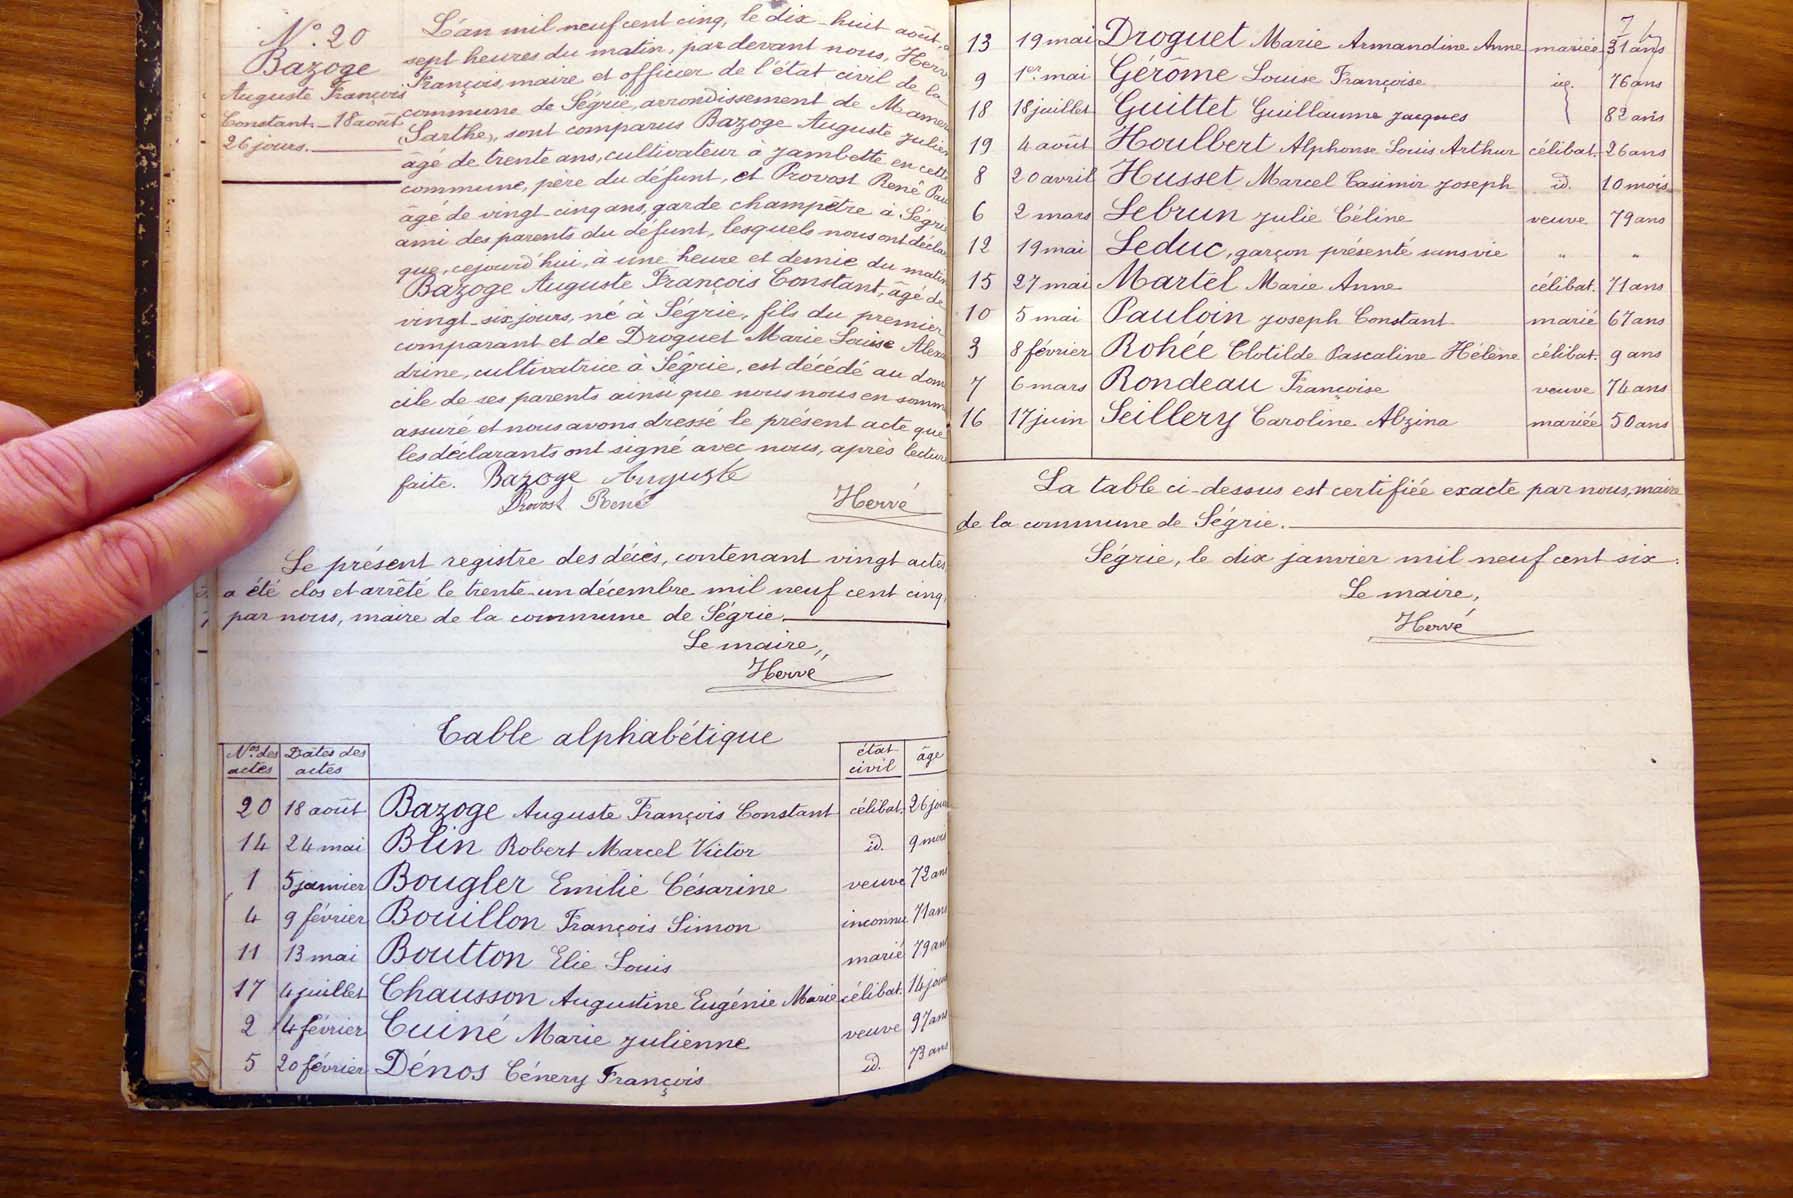 N° 20
Bazoge
Auguste François
Constant. 18 août
26 jours.
L'an mil neuf cent cinq, le dix-huit août à
sept heures du matin, par devant nous, Hervé
François, maire et officier de l'état civil de la
commune de Ségrie, arrondissement de Mamers
Sarthe, sont comparus Bazoge Auguste Julien
âgé de trente ans, cultivateur à Jambette en cette
commune, père du défunt, et Provost René Paul
âgé de vingt-cinq ans, garde champêtre à Ségrie
ami des parents du défunt, lesquels nous ont déclaré
que, cejourd'hui, à une heure et demie du matin
Bazoge Auguste François Constant, âgé de
vingt-six jours, né à Ségrie, fils du premier
comparant et de Droguet Marie Louise Alexan
drine, cultivatrice à Ségrie, est décédé au domi
cile de ses parents ainsi que nous nous en sommes
assuré et nous avons dressé le présent acte que
les déclarants ont signé avec nous, après lecture
faite. Bazoge Auguste
Provost René Hervé
Le présent registre des décès, contenant vingt actes
a été clos et arrêté le trente-un décembre mil neuf cent cinq,
par nous, maire de la commune de Ségrie.
Le maire,
Hervé
Table alphabétique
Nos des actes Dates des actes état civil âge
20 18 août Bazoge Auguste François Constant célibat. 26 jours
14 24 mai Blin Robert Marcel Victor id. 9 mois
1 5 janvier Bougler Emilie Césarine veuve 72 ans
4 9 février Bouillon François Simon inconnu 71 ans
11 13 mai Boutton Elie Louis marié 79 ans
17 4 juillet Chausson Augustine Eugénie Marie célibat. 14 jours
2 4 février Cuiné Marie Julienne veuve 97 ans
5 20 février Dénos Cénery François id. 73 ans
13 19 mai Droguet Marie Armandine Anne mariée 31 ans
9 1er mai Gérôme Louise Françoise ve. 76 ans
18 18 juillet Guittet Guillaume Jacques 82 ans
19 4 août Houlbert Alphonse Louis Arthur célibat. 26 ans
8 20 avril Husset Marcel Casimir Joseph id. 10 mois
6 2 mars Lebrun Julie Céline veuve 79 ans
12 19 mai Leduc, garçon présenté sans vie " "
15 27 mai Martel Marie Anne célibat. 71 ans
10 5 mai Pauloin Joseph Constant marié 67 ans
3 8 février Rohée Clotilde Pascaline Hélène célibat. 9 ans
7 6 mars Rondeau Françoise veuve 74 ans
16 17 juin Seillery Caroline Alzina mariée 50 ans
La table ci-dessus est certifiée exacte par nous, maire
de la commune de Ségrie.
Ségrie, le dix janvier mil neuf cent six.
Le maire,
Hervé